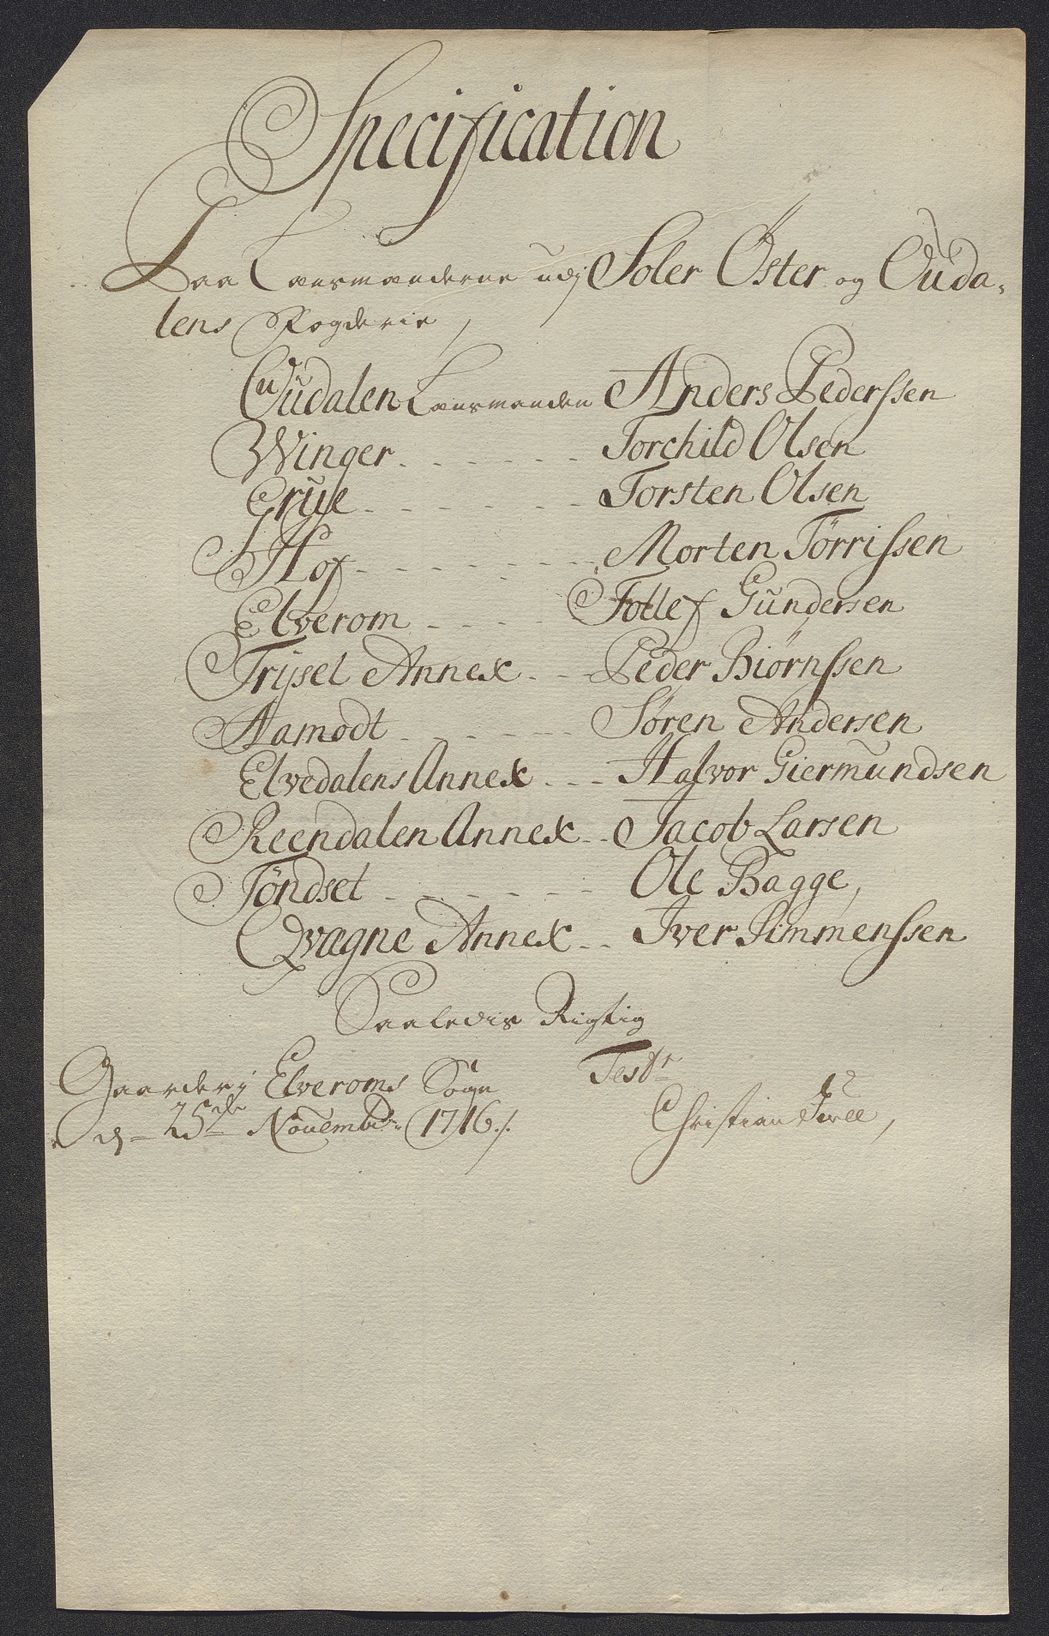 Specification
Paa Lensmænderne udj Soler Öster og Ouda-
lens Fogderie,
Oudalen Lensmanden Anders Pederssen
Winger Torchild Olsen
Grue Torsten Olsen
Hof Morten Tørrissen
Elverom Tollef Gundersen
Trysel Annex Peder Biørnssen
Aamodt Søren Andersen
Elvedalens Annex Hafvor Giermundsen
Reendalen Annex Jacob Larsen
Tøndset Ole Bagge,
Qvagne Annex Iver Simmenssen
Saaledis Rigtig
Gaarder i Elveroms Sogn Test:
d 25de Novembr: 1716 Christian